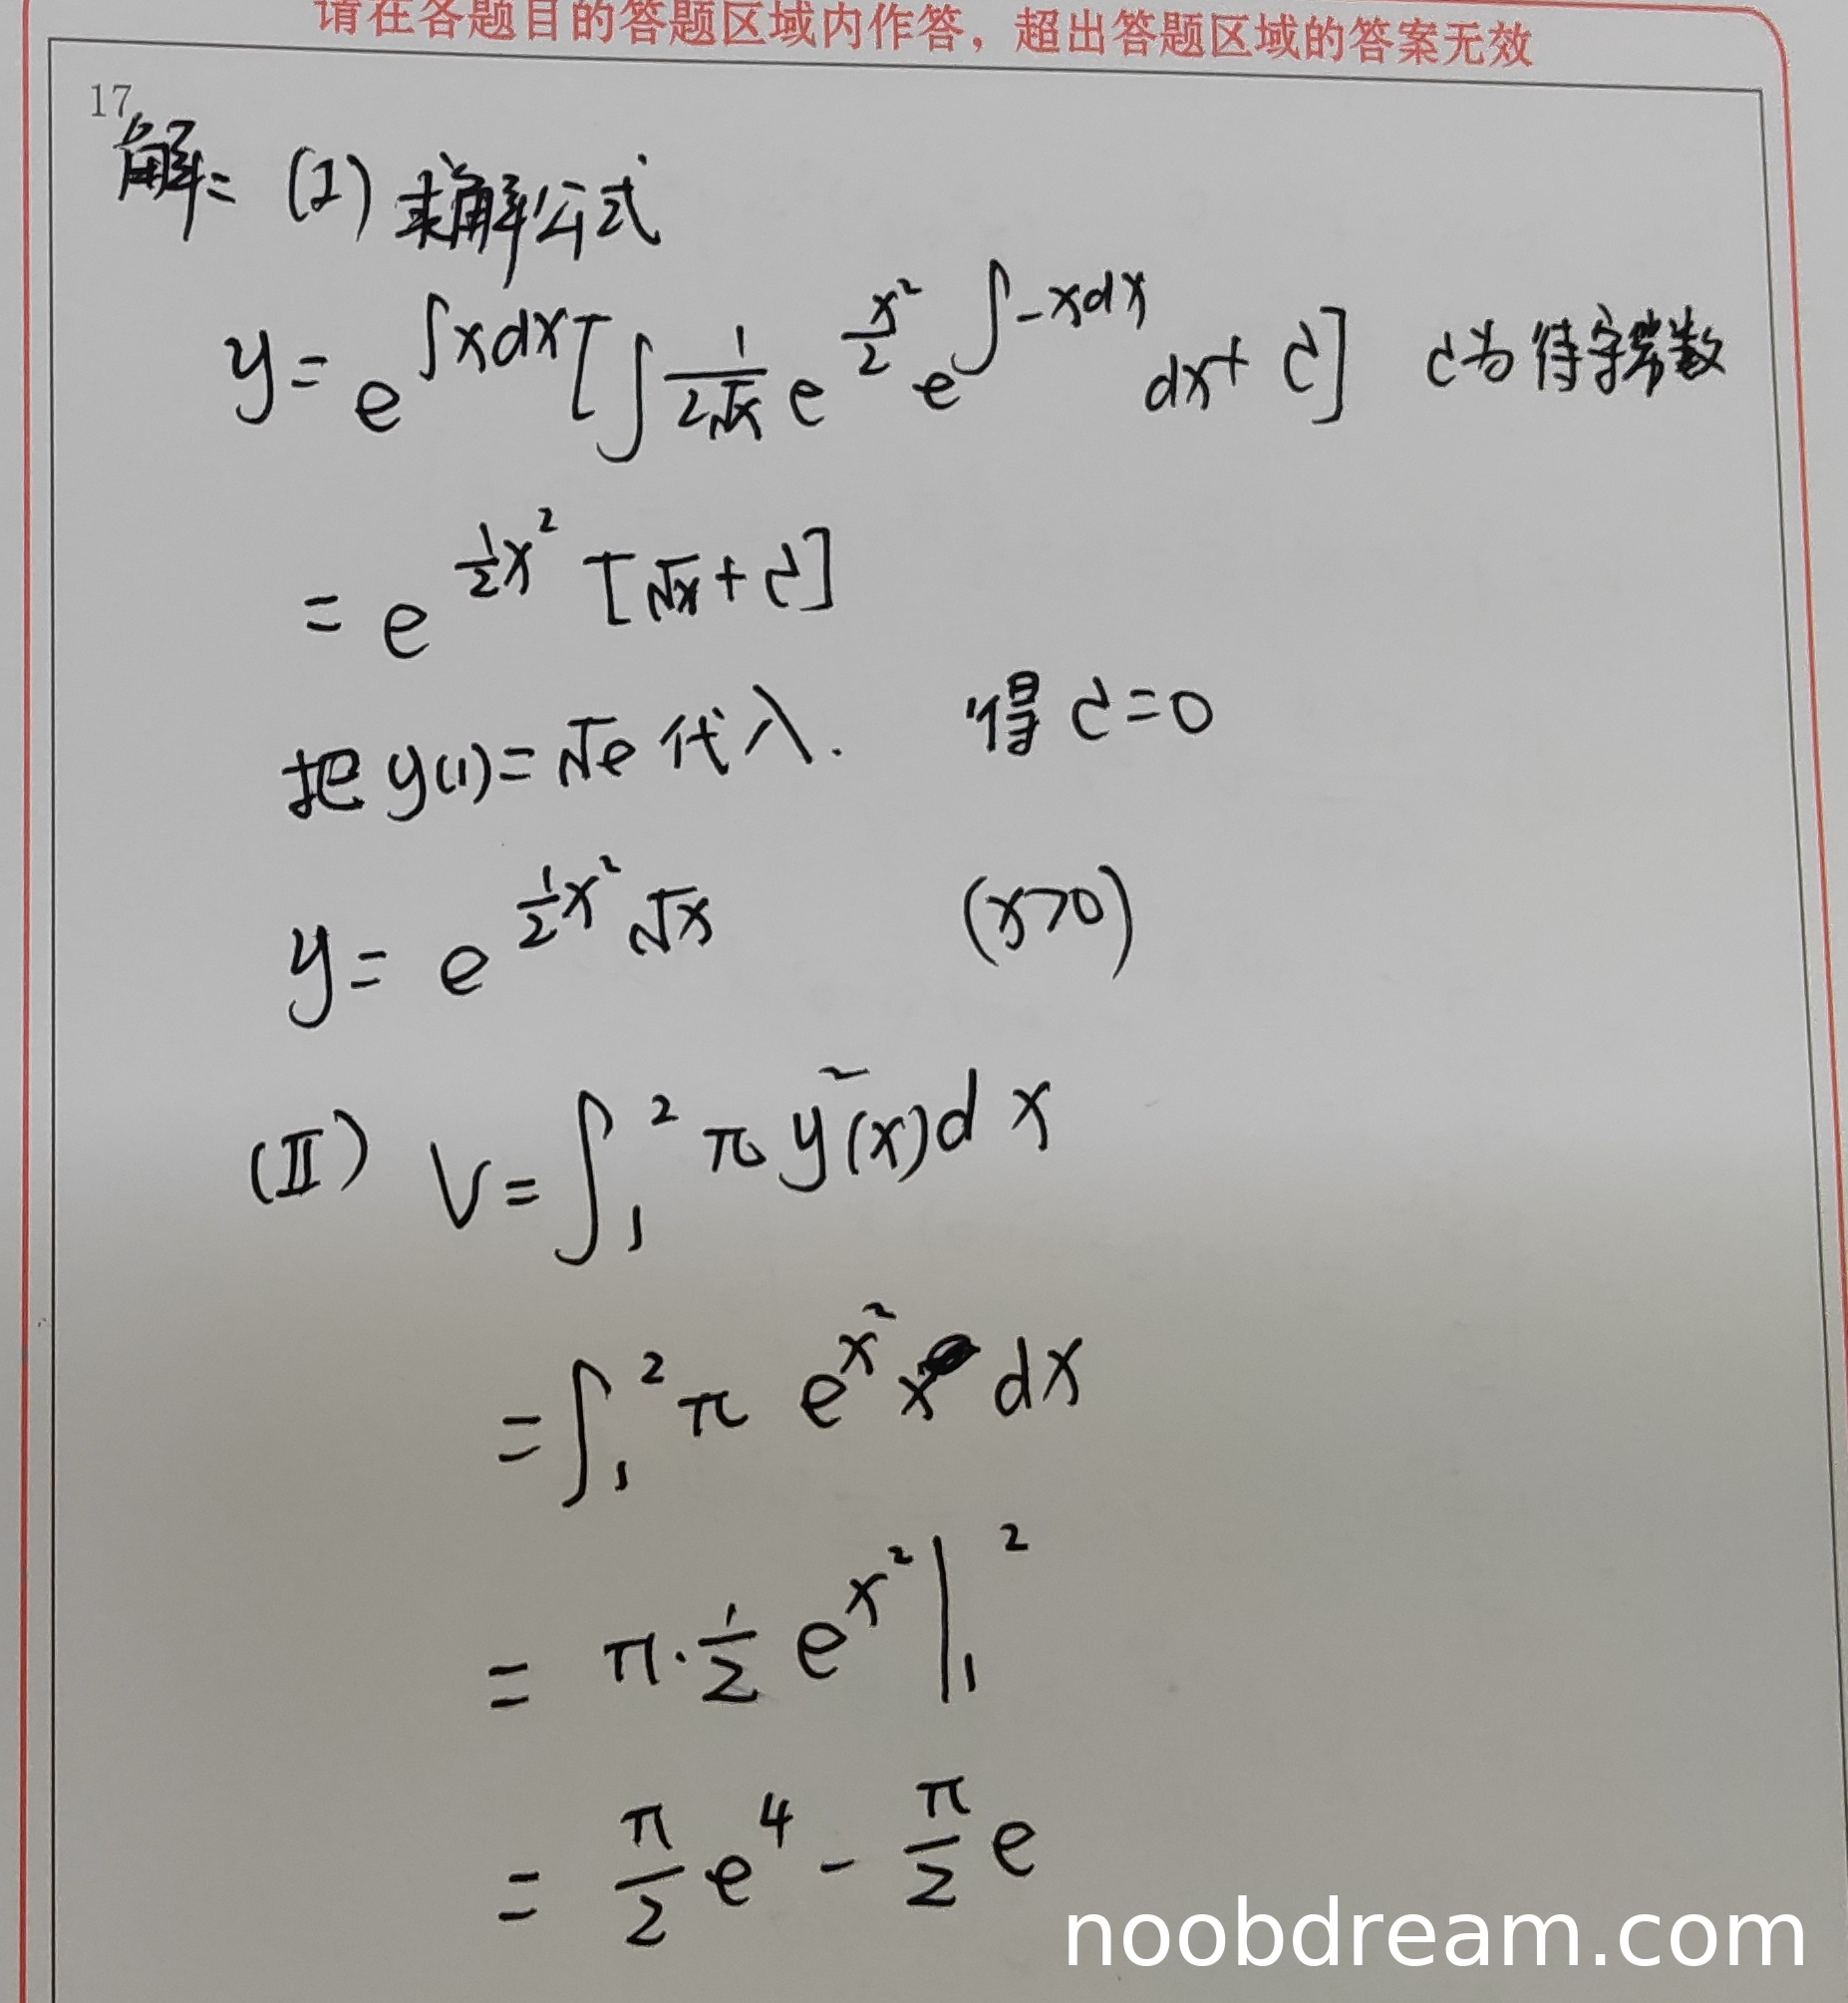 请在各题目的答题区域内作答，超出答题区域的答案无效
17
解: (I) 求解公式
y = e^{∫xdx} [∫ \frac{1}{2√x} e^{\frac{x²}{2}} e^{∫-xdx} dx + C] C为待定常数
= e^{\frac{1}{2}x²} [√x + C]
把 y(1) = √e 代入. 得 C = 0
y = e^{\frac{1}{2}x²} √x (x>0)
(II) V = ∫_1^2 π y²(x) dx
= ∫_1^2 π e^{x²} x dx
= π · \frac{1}{2} e^{x²} |_1^2
= \frac{π}{2} e^4 - \frac{π}{2} e
noobdream.com